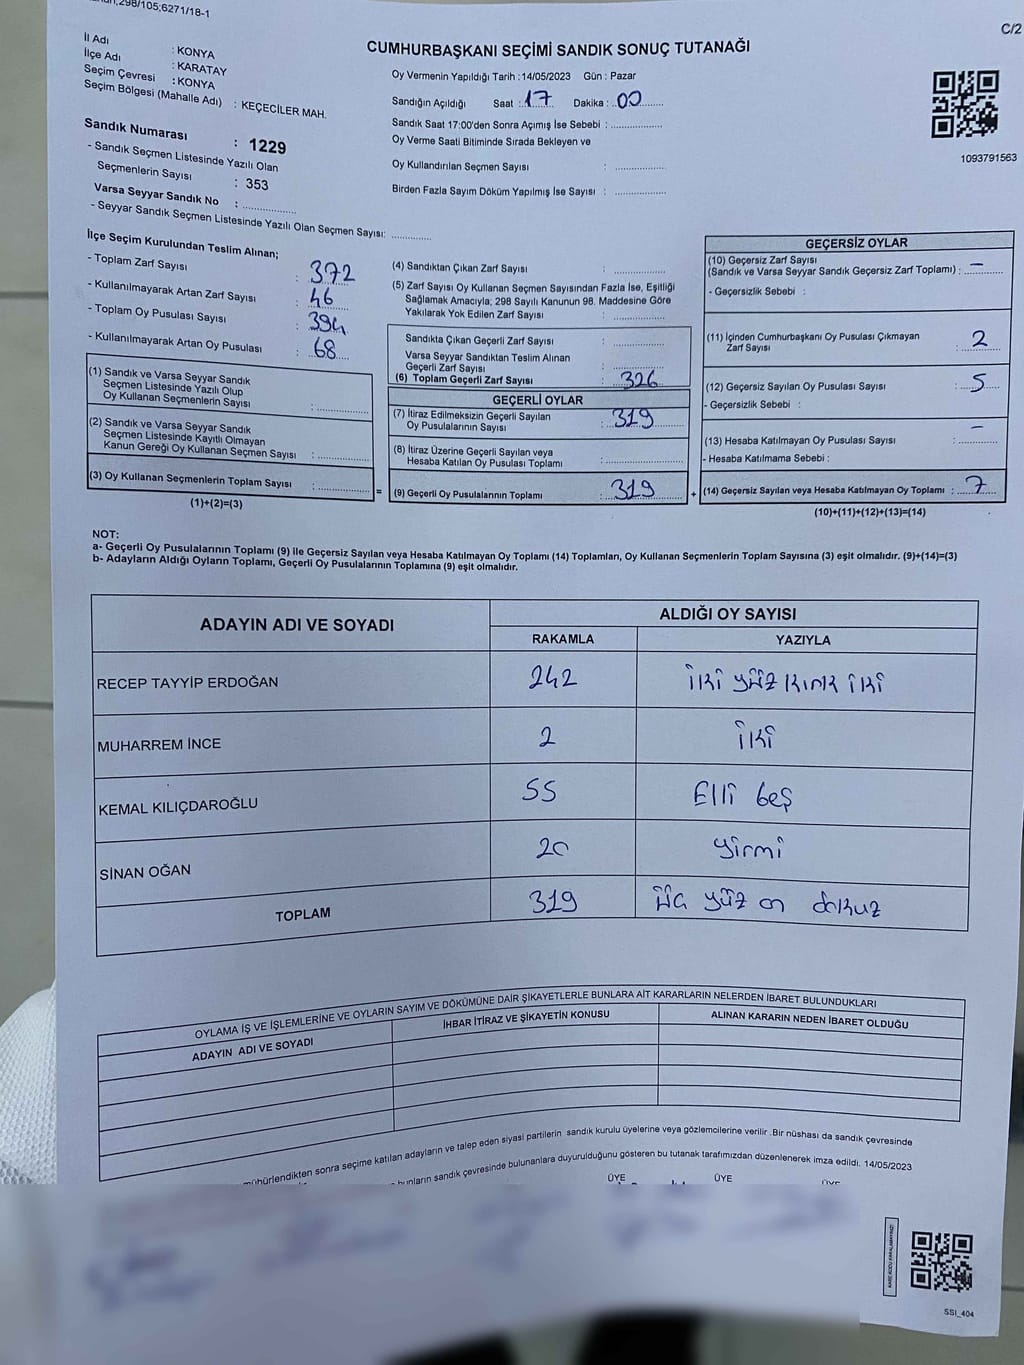 298/105;6271/18-1
C/2
CUMHURBAŞKANI SEÇİMİ SANDIK SONUÇ TUTANAĞI
İl Adı : KONYA
İlçe Adı : KARATAY
Seçim Çevresi : KONYA
Seçim Bölgesi (Mahalle Adı) : KEÇECİLER MAH.
Sandık Numarası : 1229
- Sandık Seçmen Listesinde Yazılı Olan
Seçmenlerin Sayısı : 353
Varsa Seyyar Sandık No : ................
- Seyyar Sandık Seçmen Listesinde Yazılı Olan Seçmen Sayısı: ............
Oy Vermenin Yapıldığı Tarih : 14/05/2023 Gün : Pazar
Sandığın Açıldığı Saat : 17 Dakika : 00
Sandık Saat 17:00'den Sonra Açımış İse Sebebi : ................
Oy Verme Saati Bitiminde Sırada Bekleyen ve
Oy Kullandırılan Seçmen Sayısı : ................
Birden Fazla Sayım Döküm Yapılmış İse Sayısı : ................
1093791563
İlçe Seçim Kurulundan Teslim Alınan;
- Toplam Zarf Sayısı : 372
- Kullanılmayarak Artan Zarf Sayısı : 46
- Toplam Oy Pusulası Sayısı : 394
- Kullanılmayarak Artan Oy Pusulası : 68
(1) Sandık ve Varsa Seyyar Sandık
Seçmen Listesinde Yazılı Olup
Oy Kullanan Seçmenlerin Sayısı : ................
(2) Sandık ve Varsa Seyyar Sandık
Seçmen Listesinde Kayıtlı Olmayan
Kanun Gereği Oy Kullanan Seçmen Sayısı : ................
(3) Oy Kullanan Seçmenlerin Toplam Sayısı : ................
(1)+(2)=(3)
(4) Sandıktan Çıkan Zarf Sayısı : ................
(5) Zarf Sayısı Oy Kullanan Seçmen Sayısından Fazla İse, Eşitliği
Sağlamak Amacıyla; 298 Sayılı Kanunun 98. Maddesine Göre
Yakılarak Yok Edilen Zarf Sayısı : ................
Sandıkta Çıkan Geçerli Zarf Sayısı : ................
Varsa Seyyar Sandıktan Teslim Alınan
Geçerli Zarf Sayısı : ................
(6) Toplam Geçerli Zarf Sayısı : 326
GEÇERLİ OYLAR
(7) İtiraz Edilmeksizin Geçerli Sayılan
Oy Pusulalarının Sayısı : 319
(8) İtiraz Üzerine Geçerli Sayılan veya
Hesaba Katılan Oy Pusulası Toplamı : ................
= (9) Geçerli Oy Pusulalarının Toplamı : 319 +
GEÇERSİZ OYLAR
(10) Geçersiz Zarf Sayısı
(Sandık ve Varsa Seyyar Sandık Geçersiz Zarf Toplamı) : –
- Geçersizlik Sebebi :
(11) İçinden Cumhurbaşkanı Oy Pusulası Çıkmayan
Zarf Sayısı : 2
(12) Geçersiz Sayılan Oy Pusulası Sayısı : 5
- Geçersizlik Sebebi :
(13) Hesaba Katılmayan Oy Pusulası Sayısı : –
- Hesaba Katılmama Sebebi :
(14) Geçersiz Sayılan veya Hesaba Katılmayan Oy Toplamı : 7
(10)+(11)+(12)+(13)=(14)
NOT:
a- Geçerli Oy Pusulalarının Toplamı (9) ile Geçersiz Sayılan veya Hesaba Katılmayan Oy Toplamı (14) Toplamları, Oy Kullanan Seçmenlerin Toplam Sayısına (3) eşit olmalıdır. (9)+(14)=(3)
b- Adayların Aldığı Oyların Toplamı, Geçerli Oy Pusulalarının Toplamına (9) eşit olmalıdır.
ADAYIN ADI VE SOYADI
ALDIĞI OY SAYISI
RAKAMLA YAZIYLA
RECEP TAYYİP ERDOĞAN 242 iki yüz kırk iki
MUHARREM İNCE 2 iki
KEMAL KILIÇDAROĞLU 55 Elli beş
SİNAN OĞAN 20 yirmi
TOPLAM 319 üç yüz on dokuz
OYLAMA İŞ VE İŞLEMLERİNE VE OYLARIN SAYIM VE DÖKÜMÜNE DAİR ŞİKAYETLERLE BUNLARA AİT KARARLARIN NELERDEN İBARET BULUNDUKLARI
ADAYIN ADI VE SOYADI İHBAR İTİRAZ VE ŞİKAYETİN KONUSU ALINAN KARARIN NEDEN İBARET OLDUĞU
mühürlendikten sonra seçime katılan adayların ve talep eden siyasi partilerin sandık kurulu üyelerine veya gözlemcilerine verilir .Bir nüshası da sandık çevresinde
bunların sandık çevresinde bulunanlara duyurulduğunu gösteren bu tutanak tarafımızdan düzenlenerek imza edildi. 14/05/2023
ÜYE ÜYE ÜYE
SSI_404